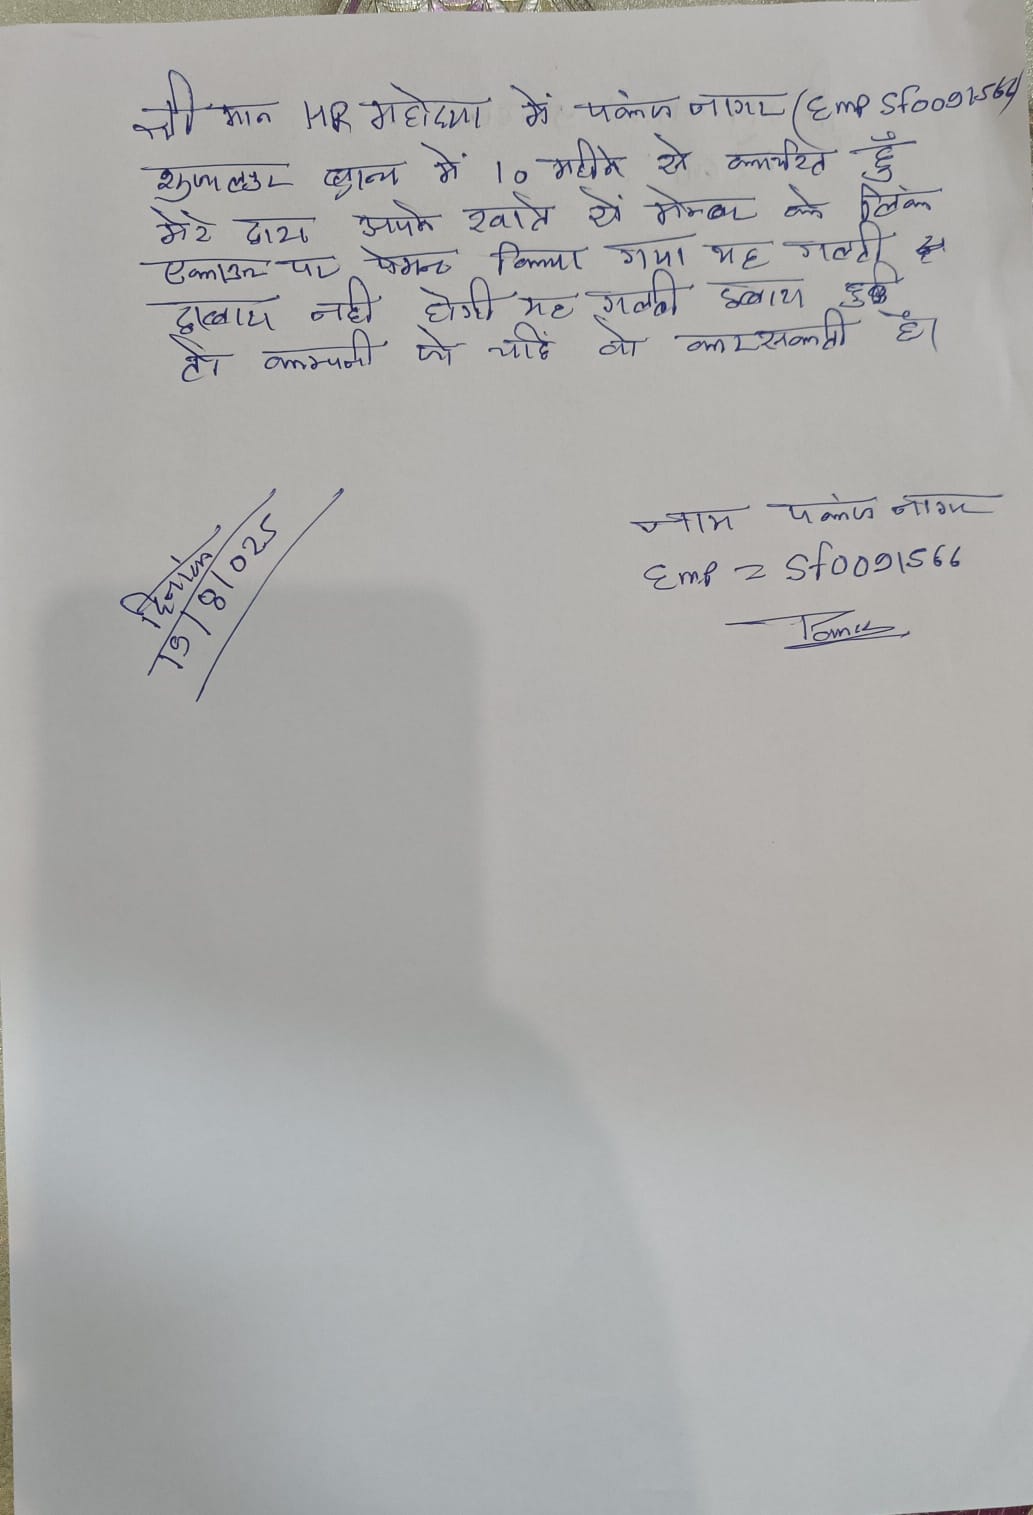 श्री मान HR महोदया में पकंज नागर (Emp Sf0091566)
ब्रान्च में 10 महीने से कार्यरत हुँ
मेरे द्वारा अपने खाते से मेम्बर के लिंक
एकाउन्ट पर पेमेन्ट किया गया यह गलती
दुबारा नही होगी यह गलती दुबारा हुई
तो कम्पनी जो चाहें वो कर सकती है।
नाम पकंज नागर
Emp = Sf0091566
दिनांक
19/8/025